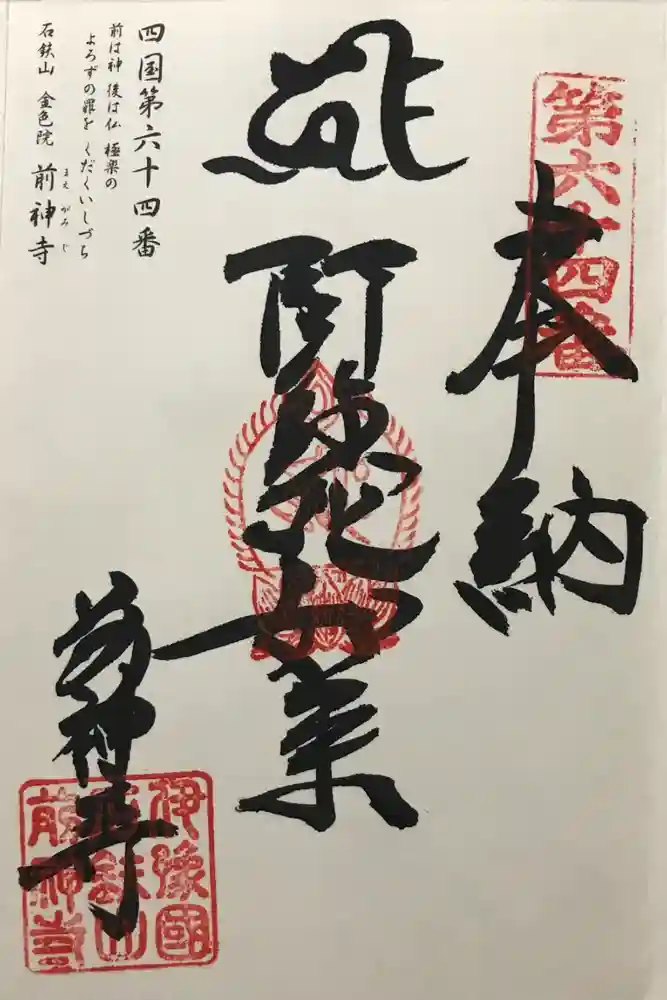 第六十四番
奉納
阿弥陀如来
前神寺
伊豫國
石鉄山
前神寺
四国第六十四番
前は神 後は仏 極楽の
よろずの罪を くだくいしづち
石鉄山 金色院 前神寺
まえがみじ